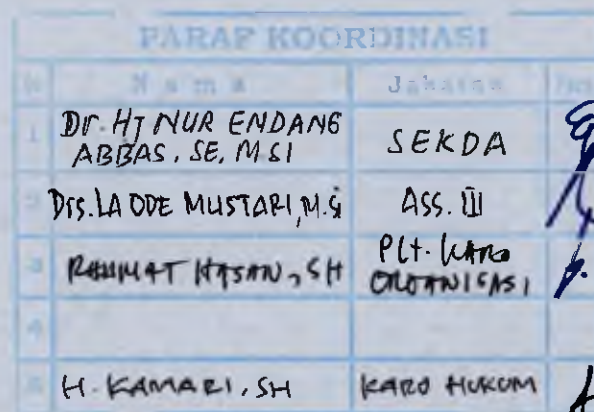 PARAF KOORDINASI
Nama Jabatan
1 Dr. HJ NUR ENDANG
ABBAS, SE, MSI SEKDA
2 Drs. LA ODE MUSTARI, M.Si ASS. III
3 RAHMAT HASAN, SH Plt. KARO
ORGANISASI
4
5 H. KAMARI, SH KARO HUKUM